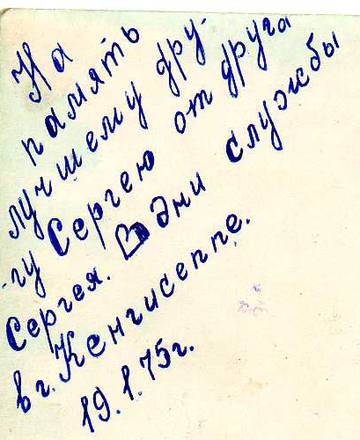 На
память
лучшему дру-
-гу Сергею от друга
Сергея. В дни службы
в г. Кенгисеппе.
19.1.75г.